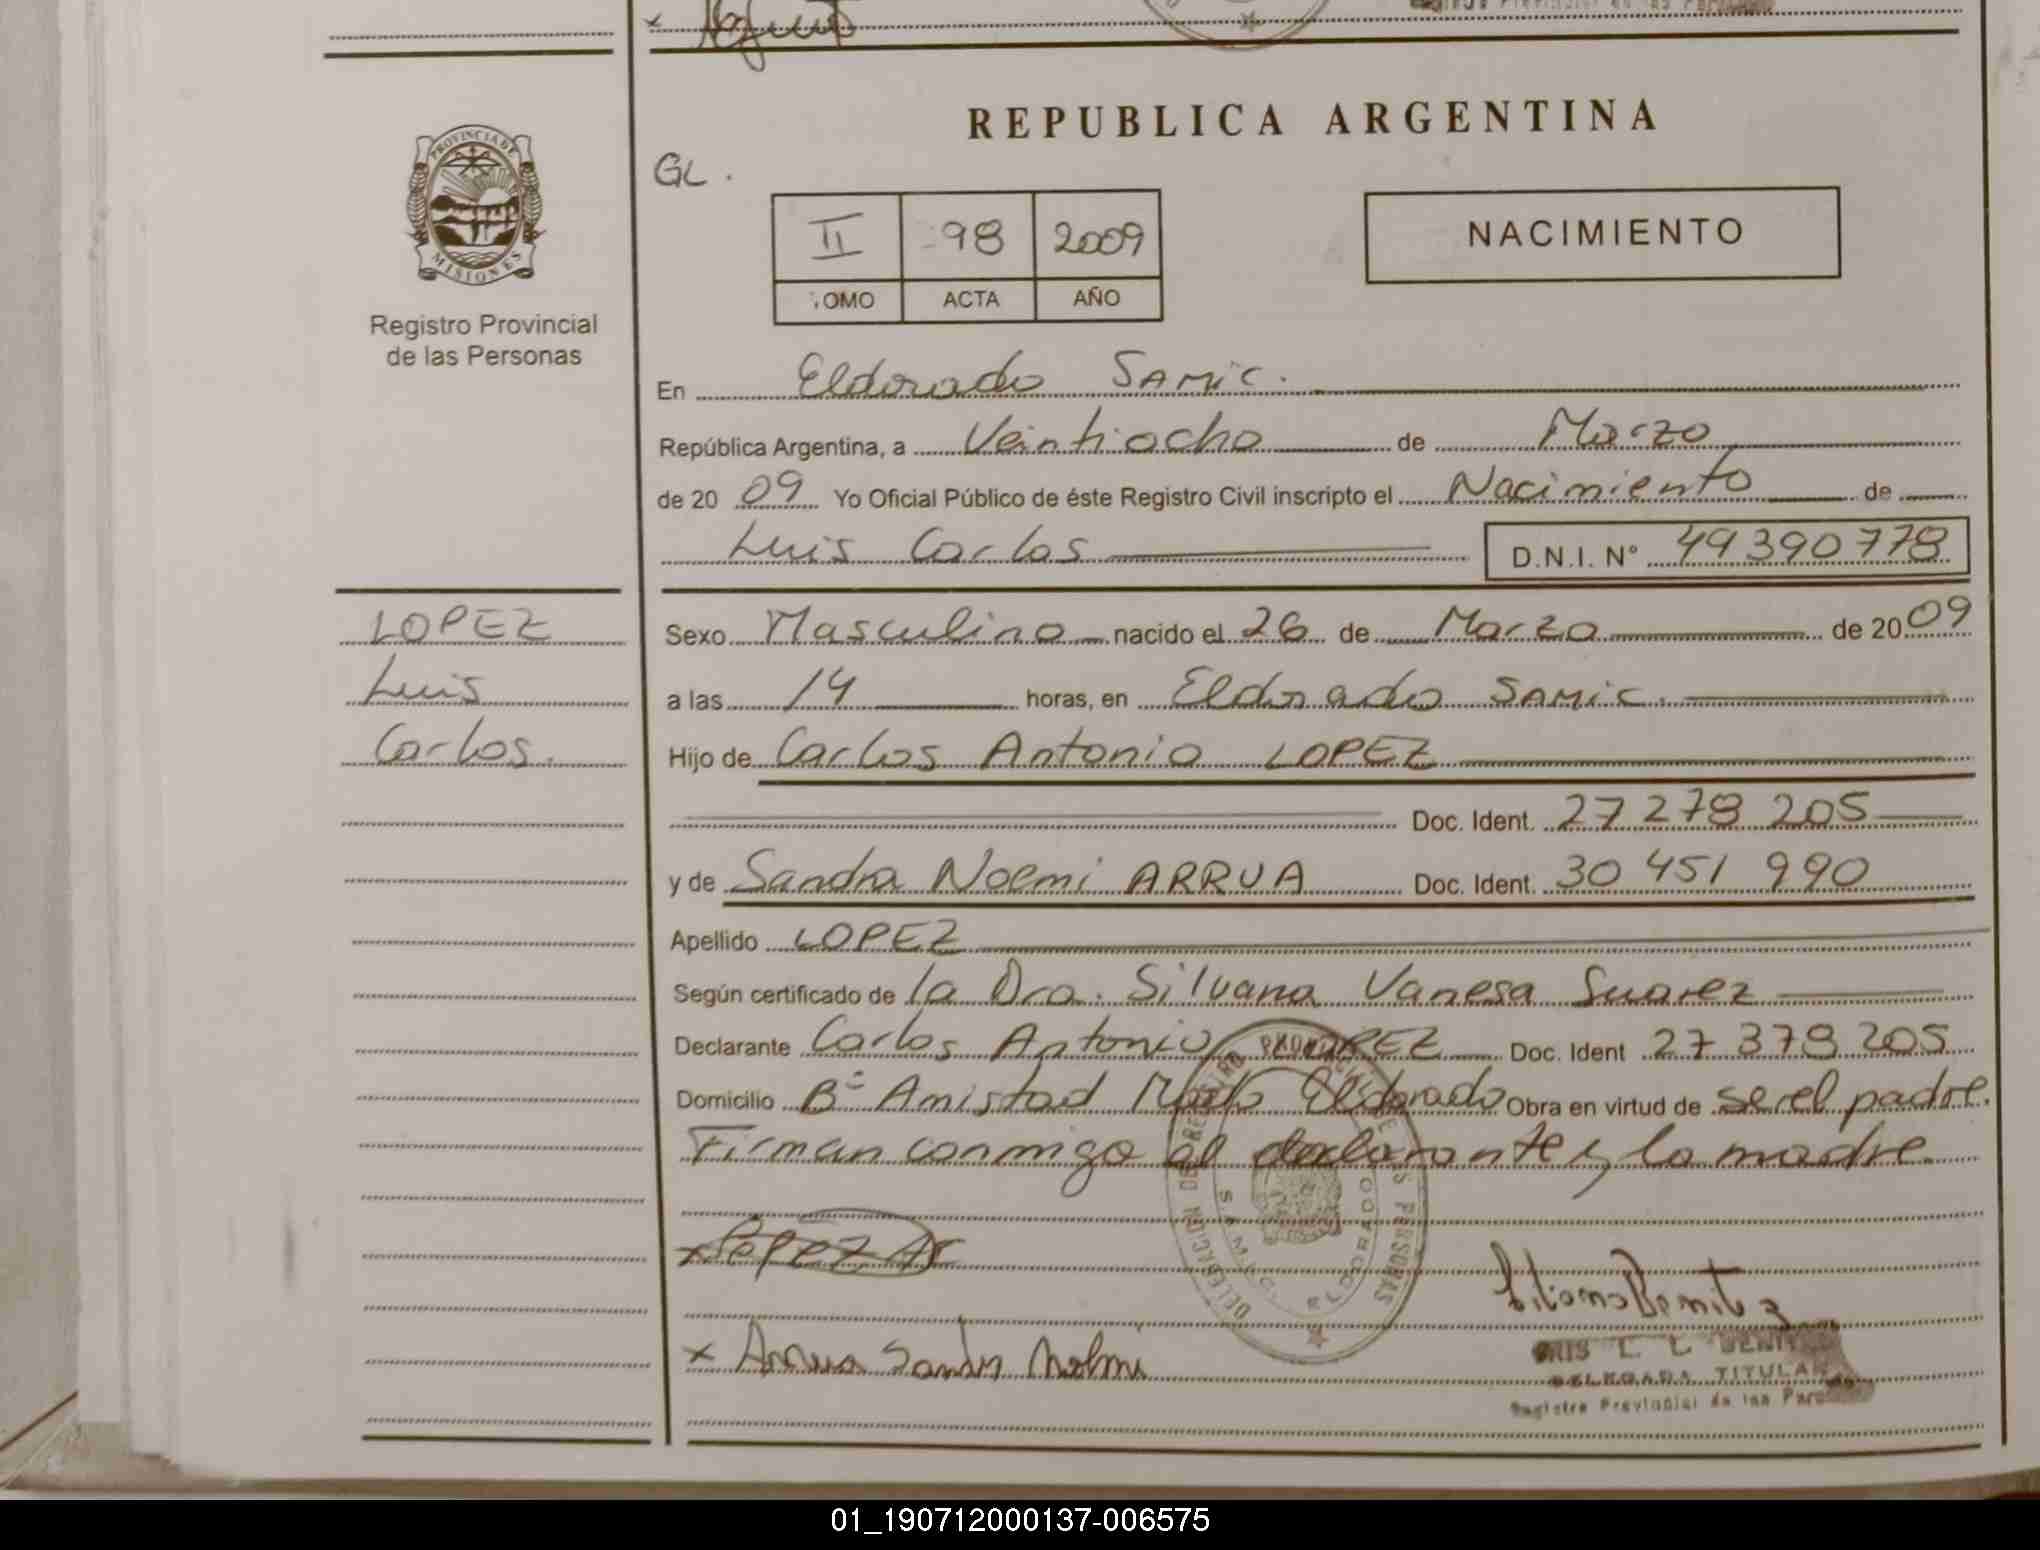 REPUBLICA ARGENTINA
PROVINCIA DE
MISIONES
Registro Provincial
de las Personas
GL.
NACIMIENTO
II 98 2009
TOMO ACTA AÑO
En Eldorado SAMIC.
República Argentina, a Veintiocho de Marzo
de 2009 Yo Oficial Público de éste Registro Civil inscripto el Nacimiento de
Luis Carlos D.N.I. N° 49390778
LOPEZ
Luis
Carlos.
Sexo Masculino nacido el 26 de Marzo de 2009
a las 14 horas, en Eldorado SAMIC.
Hijo de Carlos Antonio LOPEZ
Doc. Ident. 27 278 205
y de Sandra Noemi ARRUA Doc. Ident. 30 451 990
Apellido LOPEZ
Según certificado de la Dra. Silvana Vanesa Suarez
Declarante Carlos Antonio LOPEZ Doc. Ident 27 378 205
Domicilio B° Amistad Eldorado Obra en virtud de ser el padre.
Firman conmigo el declarante y la madre.
DELEGACION DE REGISTRO PROVINCIAL DE LAS PERSONAS
S.A.M.I.C. ELDORADO
x Lopez
x Arrua Sandra Noemi
DELEGADA TITULAR
Registro Provincial de las Pers
01_190712000137-006575